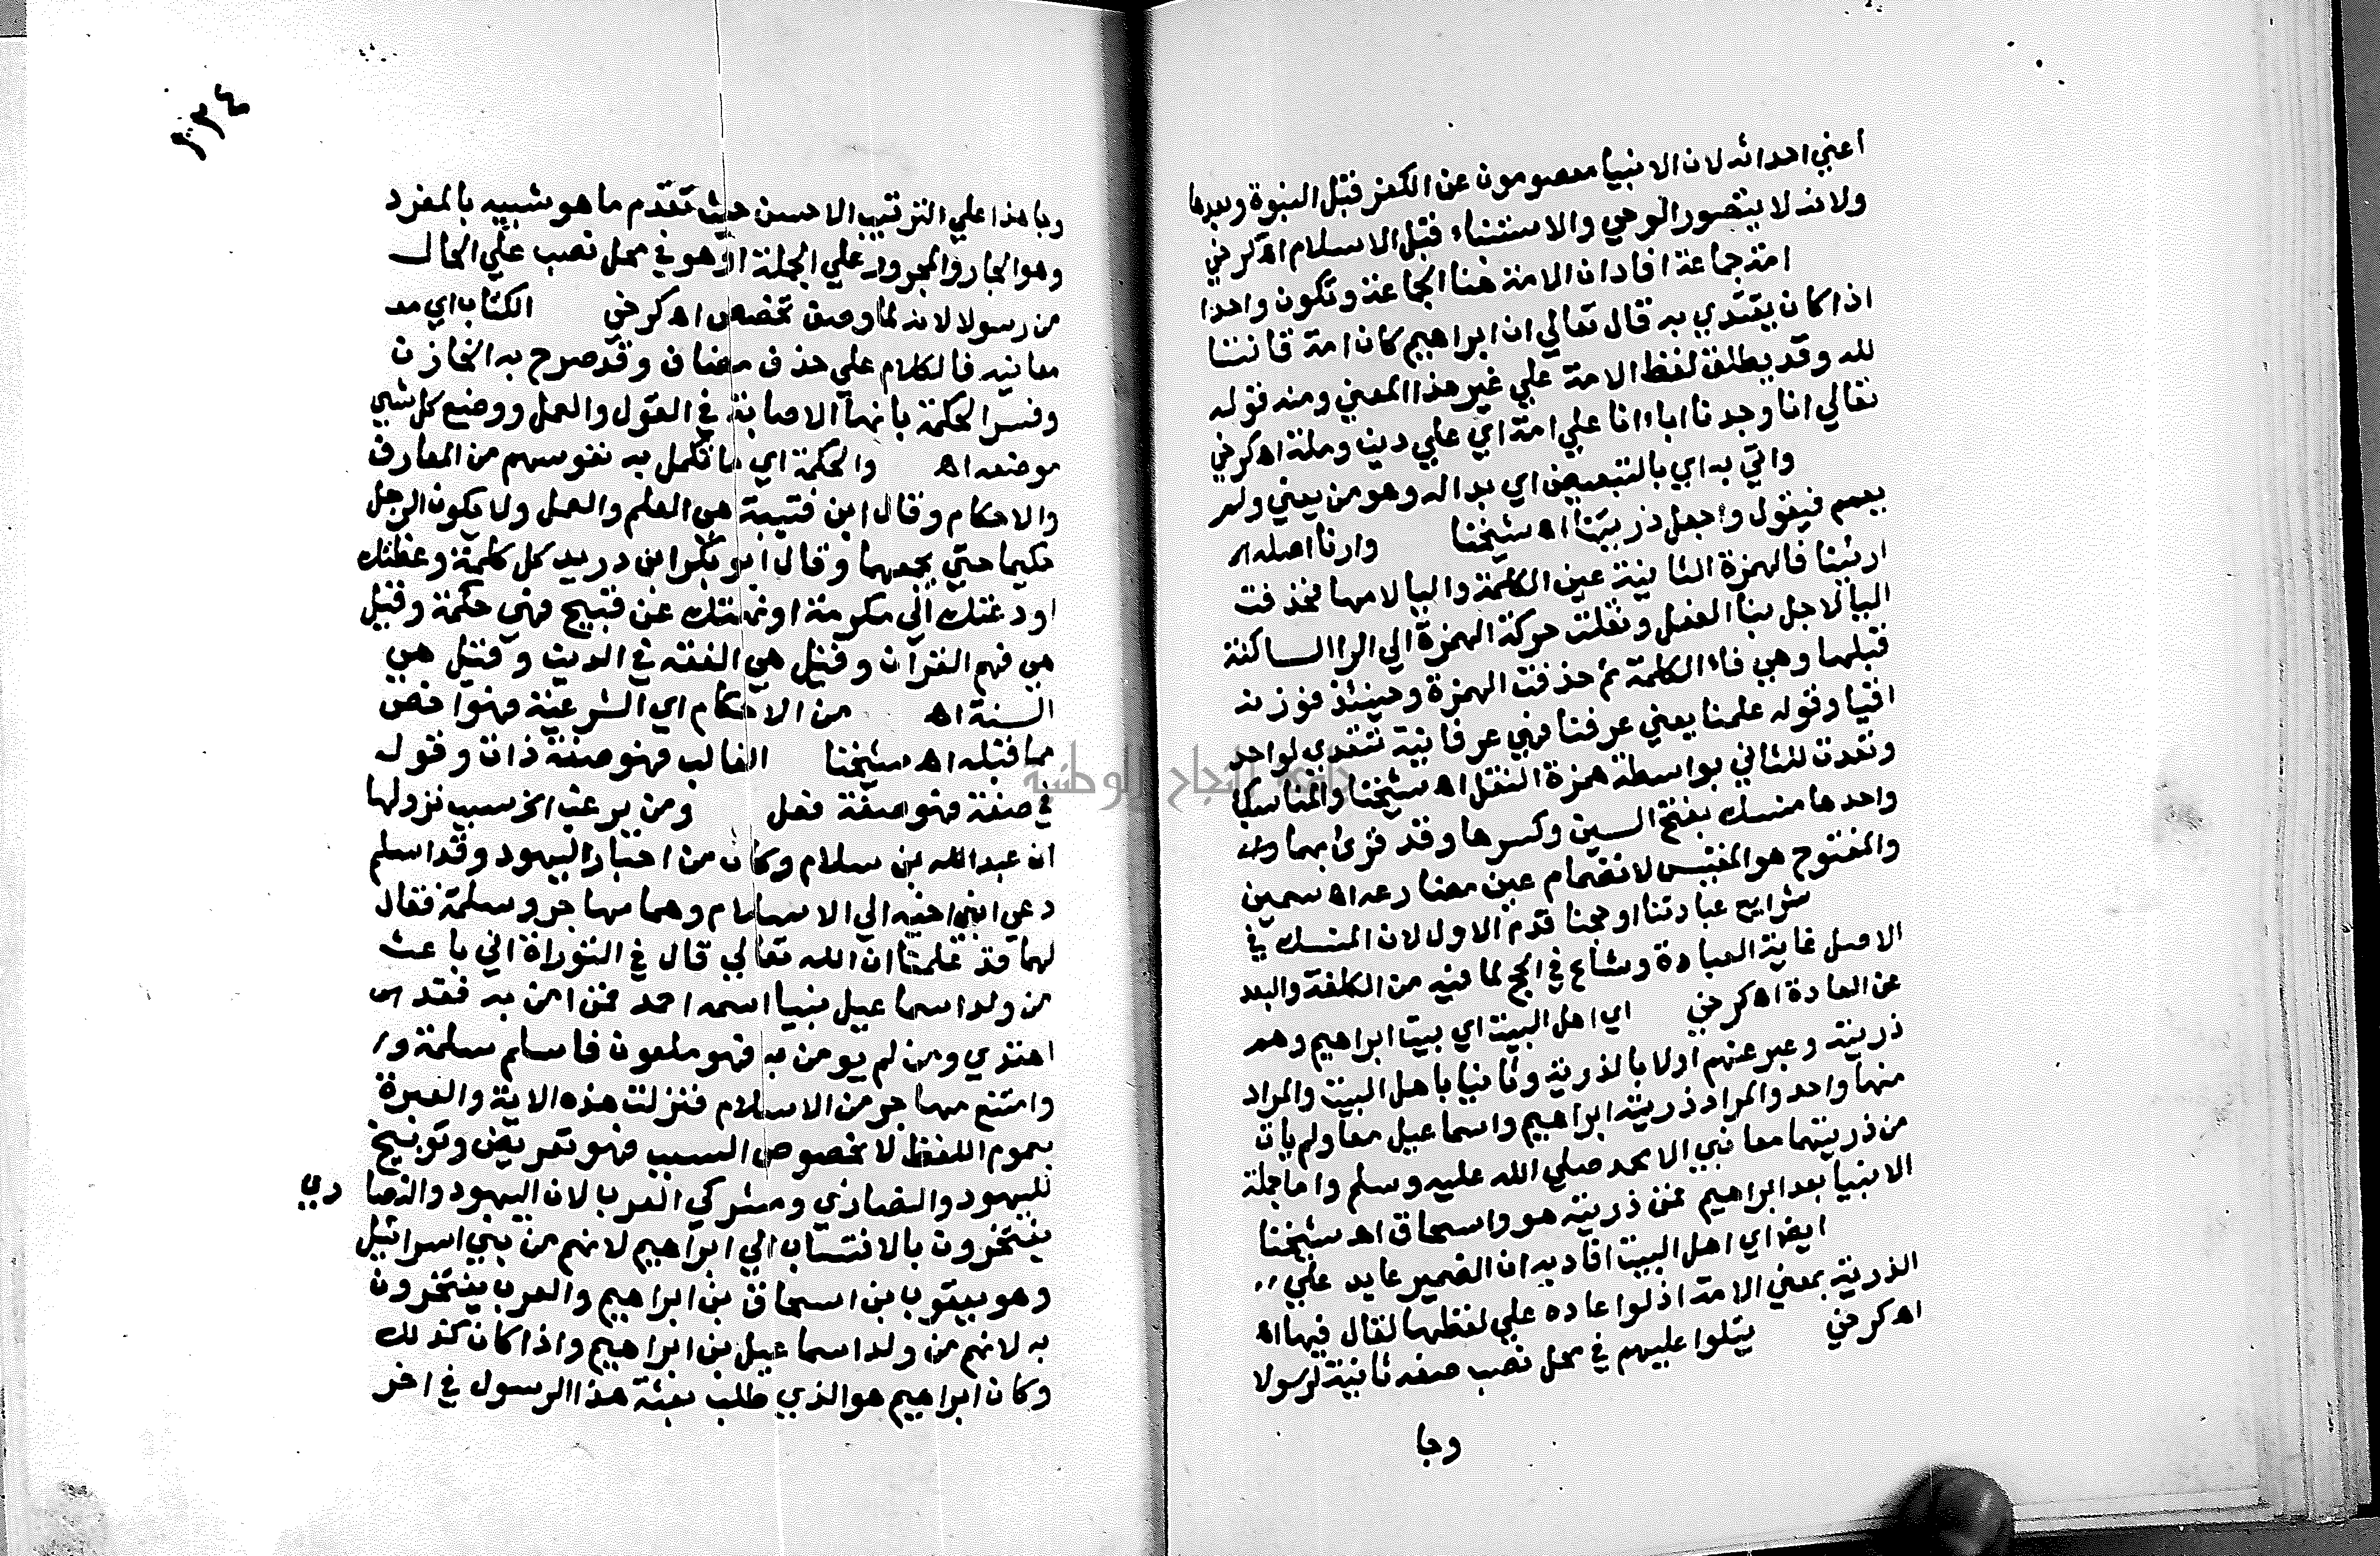 اعني احداثه لان الانبيا معصومون عن الكفر قبل النبوة وبعدها
ولانه لا يتصور الوحي والاستنباء قبل الاسلام اه كرخي
امة جماعة افاد ان الامة هنا الجماعة وتكون واحدا
اذا كان يقتدي به قال تعالي ان ابراهيم كان امة قانتا
لله وقد يطلق لفظ الامة علي غير هذا المعني ومنه قوله
تعالي انا وجدنا اباءنا علي امة اي علي دين وملة اه كرخي
واتي به اي بالتبعيض اي بداله وهو من يعني ولم
يعمم فيقول واجعل ذريتنا اه شيخنا وارنا اصله
ارئنا فالهمزة الثانية عين الكلمة واليا لامها فحذفت
اليا لاجل بنا الفعل ونقلت حركة الهمزة الي الرا الساكنة
قبلها وهي فاء الكلمة ثم حذفت الهمزة وحينئذ فوزنه
افنا وقوله علمنا يعني عرفنا فهي عرفانية تتعدي لواحد
وتعدت للثاني بواسطة همزة النقل اه شيخنا والمناسك
واحدها منسك بفتح السين وكسرها وقد قرئ بهما
والمفتوح هو المقيس لانضمام عين مضارعه اه سمين
شرايع عبادتنا او حجنا قدم الاول لان المنسك في
الاصل غاية العبادة وشاع في الحج لما فيه من الكلفة والبعد
عن العادة اه كرخي اي اهل البيت اي بيت ابراهيم وهم
ذريته وعبر عنهم اولا بالذرية وثانيا باهل البيت والمراد
منها واحد والمراد ذرية ابراهيم واسماعيل معا ولم يات
من ذريتهما معا نبي الا محمد صلي الله عليه وسلم واما جملة
الانبيا بعد ابراهيم فمن ذريته هو واسحاق اه شيخنا
ايضا اي اهل البيت افاد به ان الضمير عايد علي
الذرية بمعني الامة اذ لو اعاده علي لفظها لقال فيها اه
اه كرخي يتلوا عليهم في محل نصب صفه ثانية لرسولا
وجا
٢٣٤
وجا هذا علي الترتيب الاحسن حيث تقدم ما هو شبيه بالمفرد
وهو الجار والمجرور علي الجملة او هو في محل نصب علي الحال
من رسولا لانه لما وصف تخصص اه كرخي الكتاب اي
معانيه فالكلام علي حذف مضاف وقد صرح به الخازن
وفسر الحكمة بانها الاصابة في القول والعمل ووضع كل شي
موضعه اه والحكمة اي ما تكمل به نفوسهم من المعارف
والاحكام وقال ابن قتيبة هي العلم والعمل ولا يكون الرجل
حكيما حتي يجمعهما وقال ابو بكر ابن دريد كل كلمة وعظتك
او دعتك الي مكرمة او نهتك عن قبيح فهي حكمة وقيل
هي فهم القرآن وقيل هي الفقه في الدين وقيل هي
السنة اه من الاحكام اي الشرعية فهو اخص
مما قبله اه شيخنا الغالب فهو صفة ذات وقوله
في صنعة فهو صفة فعل ومن يرغب الخ سبب نزولها
ان عبد الله بن سلام وكان من احبار اليهود وقد اسلم
دعي ابني اخيه الي الاسلام وهما مهاجر وسلمة فقال
لهما قد علمتما ان الله تعالي قال في التوراة اني باعث
من ولد اسماعيل نبيا اسمه احمد فمن امن به فقد
اهتدي ومن لم يومن به فهو ملعون فاسلم سلمة و
وامتنع مهاجر من الاسلام فنزلت هذه الاية والعبرة
بعموم اللفظ لا بخصوص السبب فهو تعريض وتوبيخ
لليهود والنصاري ومشركي العرب لان اليهود والنصاري
يفتخرون بالانتساب الي ابراهيم لانهم من بني اسرائيل
وهو يعقوب بن اسحاق بن ابراهيم والعرب يفتخرون
به لانهم من ولد اسماعيل بن ابراهيم واذا كان كذلك
وكان ابراهيم هو الذي طلب بعثة هذا الرسول في اخر
جامعة النجاح الوطنية